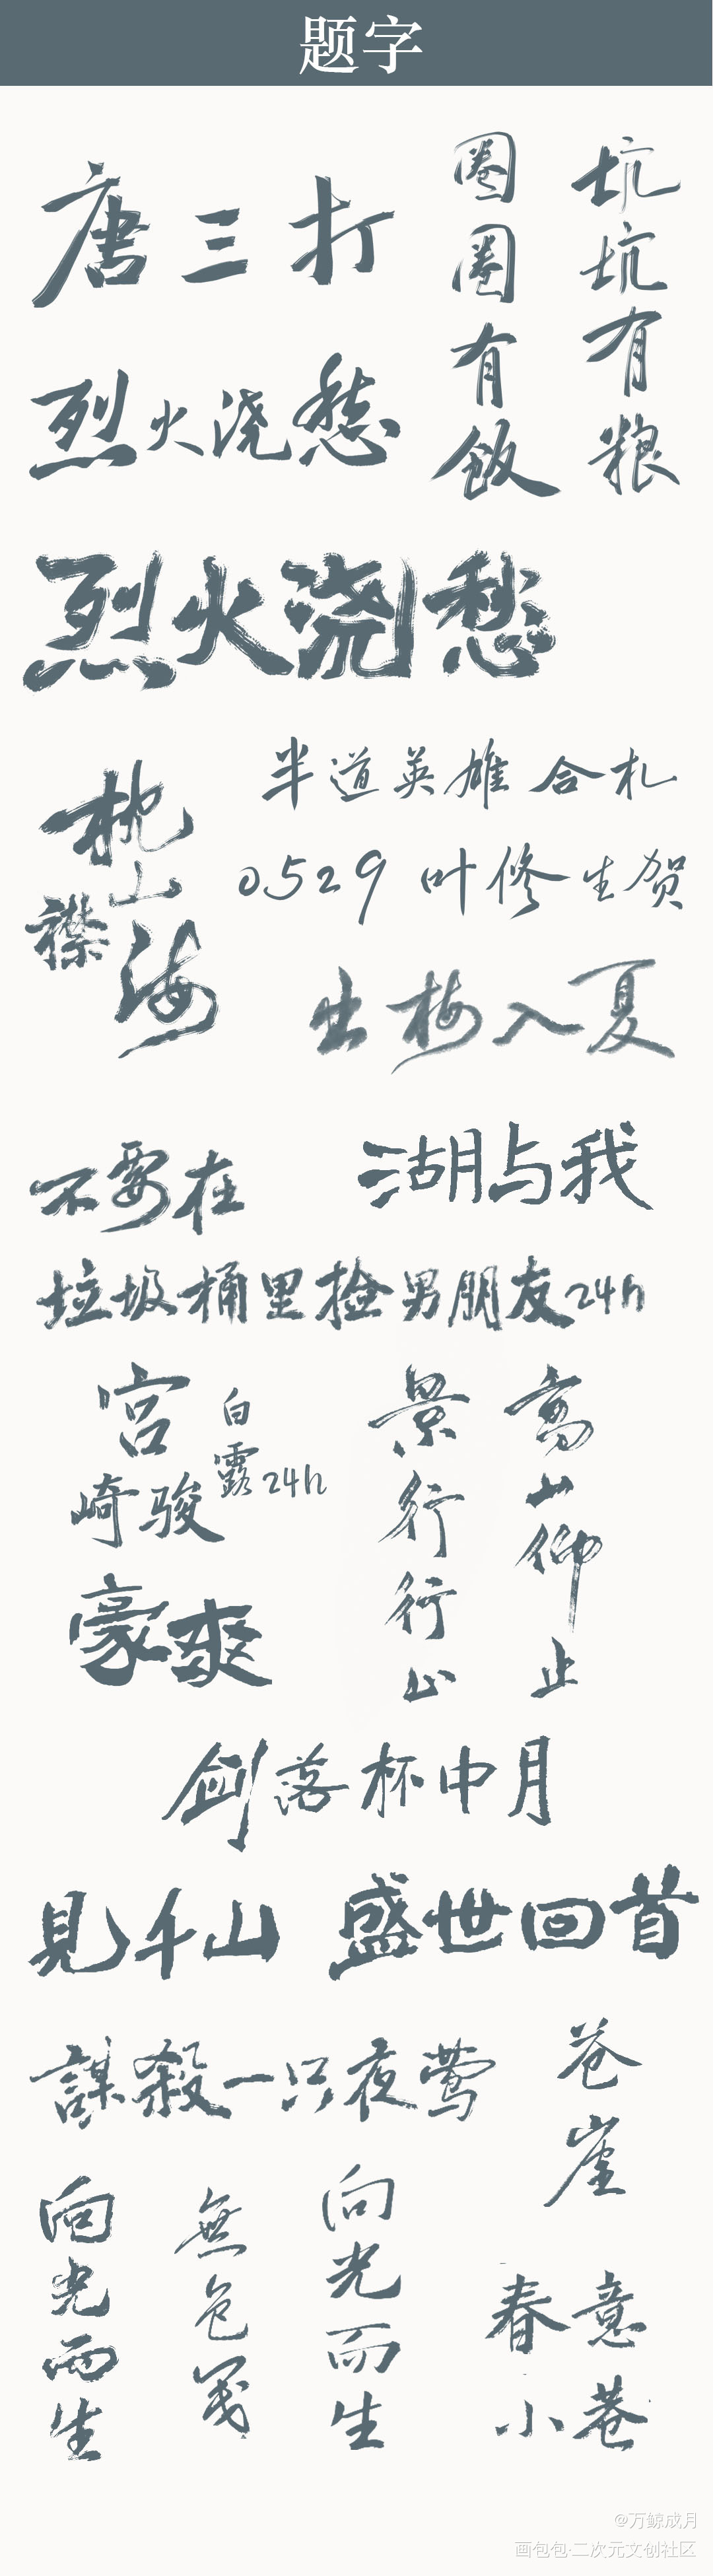 题字
唐三打
坑坑有粮
圈圈有飯
烈火浇愁
烈火浇愁
枕山
襟海
半道英雄合札
0529 叶修生贺
出梅入夏
不要在
湖与我
垃圾桶里捡男朋友24h
宫崎骏
白露24h
豪爽
高山仰止
景行行止
剑落杯中月
見千山
盛世回首
謀殺一只夜莺
苍崖
向光而生
無色
向光而生
春意
小巷
@万鲸成月
画包包·二次元文创社区